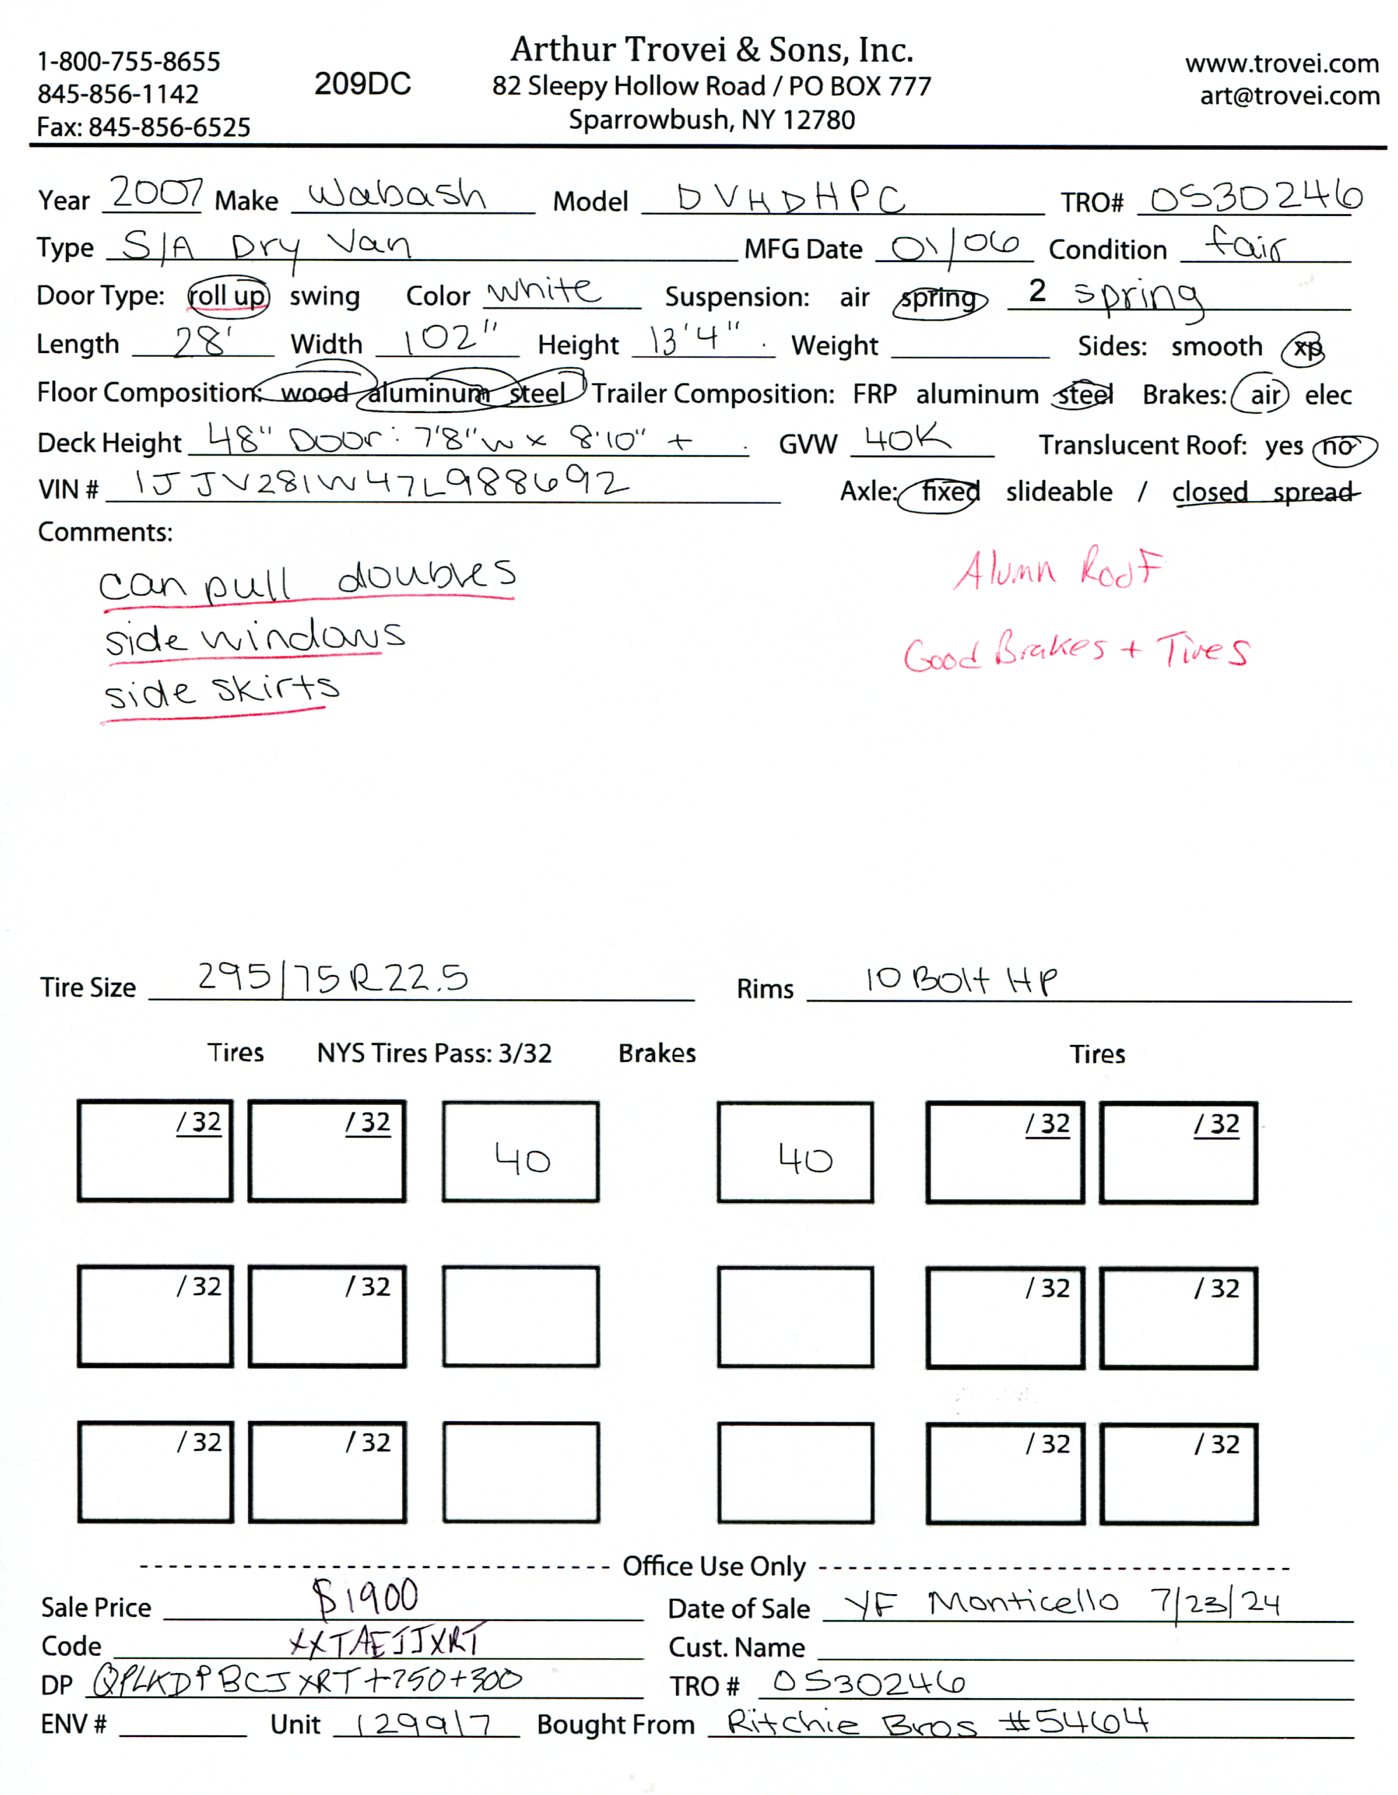 Arthur Trovei & Sons, Inc.
1-800-755-8655
845-856-1142
Fax: 845-856-6525
209DC
82 Sleepy Hollow Road / PO BOX 777
Sparrowbush, NY 12780
www.trovei.com
art@trovei.com
Year 2007 Make Wabash Model DVHDHPC TRO# 0530246
Type S/A Dry Van MFG Date 01/06 Condition fair
Door Type: roll up swing Color white Suspension: air spring 2 spring
Length 28' Width 102" Height 13'4" Weight Sides: smooth xp
Floor Composition: wood aluminum steel Trailer Composition: FRP aluminum steel Brakes: air elec
Deck Height 48" Door: 7'8"w x 8'10" + GVW 40K Translucent Roof: yes no
VIN # 1JJV281W47L988692 Axle: fixed slideable / closed spread
Comments:
can pull doubles
side windows
side skirts
Alumn Roof
Good Brakes + Tires
Tire Size 295/75R22.5 Rims 10 Bolt HP
Tires NYS Tires Pass: 3/32 Brakes Tires
/32 /32 40 40 /32 /32
/32 /32 /32 /32
/32 /32 /32 /32
Office Use Only
Sale Price $1900 Date of Sale YF Monticello 7/23/24
Code XXTAEJJXRT Cust. Name
DP QPLKDPBCJXRT+750+300 TRO # 0530246
ENV # Unit 129917 Bought From Ritchie Bros #5464